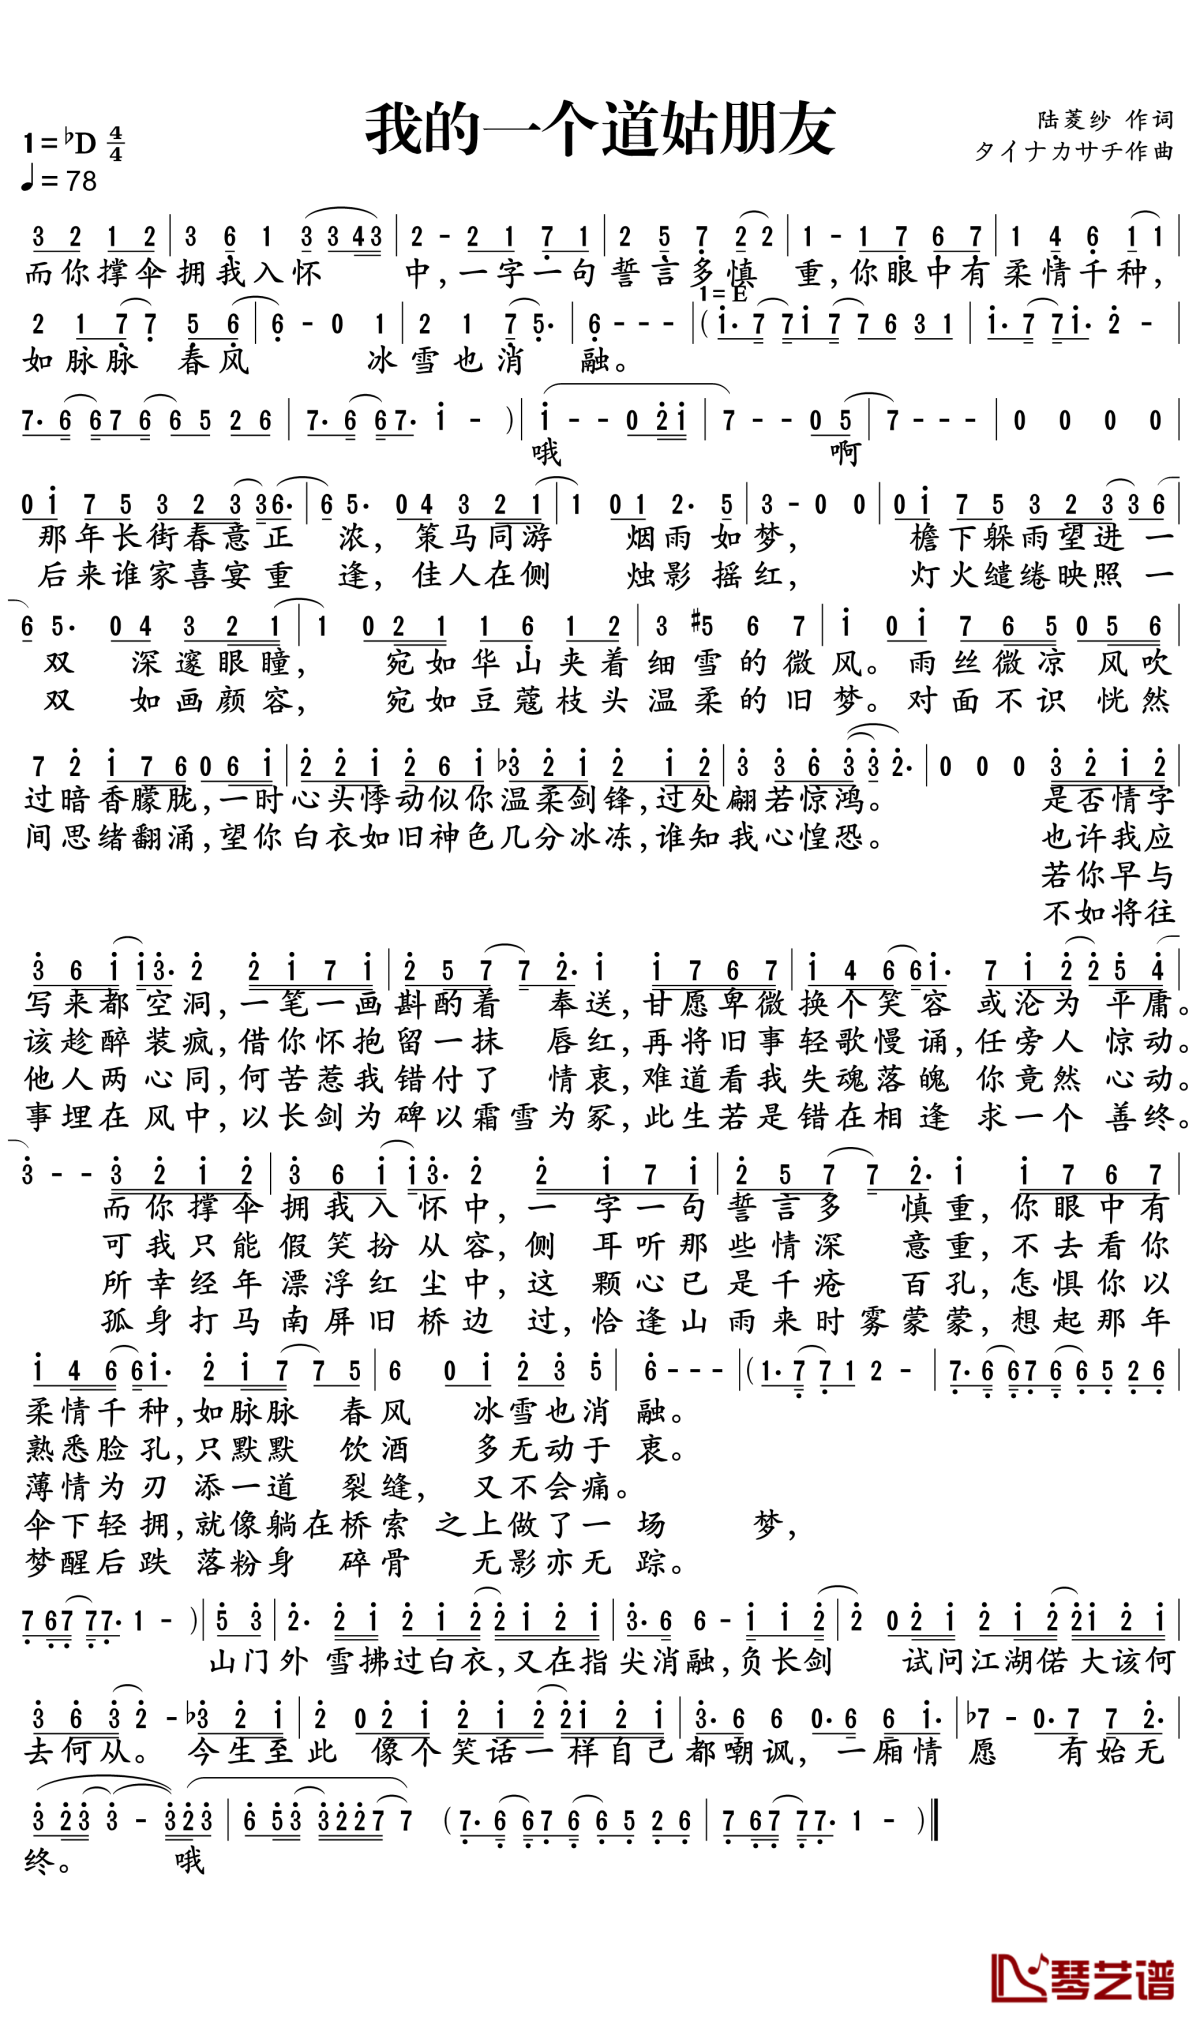 我的一个道姑朋友
陆菱纱 作词
タイナカサチ作曲
1=♭D 4/4
♩=78
3 2 1 2 | 3 6 1 3 3 4 3 | 2 - 2 1 7 1 | 2 5 7 2 2 | 1 - 1 7 6 7 | 1 4 6 1 1 |
而你撑伞拥我入怀 中,一字一句誓言多慎 重,你眼中有柔情千种,
1=E
2 1 7 7 5 6 | 6 - 0 1 | 2 1 7 5. | 6 - - - | (i. 7 7 i 7 7 6 3 1 | i. 7 7 i. 2 - |
如脉脉 春风 冰雪也消 融。
7. 6 6 7 6 6 5 2 6 | 7. 6 6 7. i - ) | i - - 0 2 i | 7 - - 0 5 | 7 - - - | 0 0 0 0 |
哦 啊
0 i 7 5 3 2 3 3 6. | 6 5. 0 4 3 2 1 | 1 0 1 2. 5 | 3 - 0 0 | 0 i 7 5 3 2 3 3 6 |
那年长街春意正 浓, 策马同游 烟雨如梦, 檐下躲雨望进一
后来谁家喜宴重 逢, 佳人在侧 烛影摇红, 灯火缱绻映照一
6 5. 0 4 3 2 1 | 1 0 2 1 1 6 1 2 | 3 #5 6 7 | i 0 i 7 6 5 0 5 6 |
双 深邃眼瞳, 宛如华山夹着细雪的微风。雨丝微凉 风吹
双 如画颜容, 宛如豆蔻枝头温柔的旧梦。对面不识 恍然
7 2 i 7 6 0 6 i | 2 2 i 2 6 i ♭3 2 i 2 i 2 | 3 3 6 3 3 2. | 0 0 0 3 2 i 2 |
过暗香朦胧,一时心头悸动似你温柔剑锋,过处翩若惊鸿。 是否情字
间思绪翻涌,望你白衣如旧神色几分冰冻,谁知我心惶恐。 也许我应
若你早与
不如将往
3 6 i i 3. 2 2 i 7 i | 2 5 7 7 2. i i 7 6 7 | i 4 6 6 i. 7 i 2 2 5 4 |
写来都空洞,一笔一画斟酌着 奉送,甘愿卑微换个笑容 或沦为 平庸。
该趁醉装疯,借你怀抱留一抹 唇红,再将旧事轻歌慢诵,任旁人 惊动。
他人两心同,何苦惹我错付了 情衷,难道看我失魂落魄 你竟然 心动。
事埋在风中,以长剑为碑以霜雪为冢,此生若是错在相逢 求一个 善终。
3 - - 3 2 i 2 | 3 6 i i 3. 2 2 i 7 i | 2 5 7 7 2. i i 7 6 7 |
而你撑伞拥我入怀中,一字一句誓言多 慎重,你眼中有
可我只能假笑扮从容,侧耳听那些情深 意重,不去看你
所幸经年漂浮红尘中,这颗心已是千疮 百孔,怎惧你以
孤身打马南屏旧桥边 过,恰逢山雨来时雾蒙蒙,想起那年
i 4 6 6 i. 2 i 7 7 5 | 6 0 i 2 3 5 | 6 - - - | (1. 7 7 1 2 - | 7. 6 6 7 6 6 5 2 6 |
柔情千种,如脉脉 春风 冰雪也消 融。
熟悉脸孔,只默默 饮酒 多无动于 衷。
薄情为刃 添一道 裂缝, 又不会痛。
伞下轻拥,就像躺在桥索 之上做了一 场 梦,
梦醒后跌 落粉身 碎骨 无影亦无 踪。
7 6 7 7 7. 1 - ) | 5 3 | 2. 2 i 2 i 2 2 i 2 i | 3. 6 6 - i i 2 | 2 0 2 i 2 i 2 2 i 2 i |
山门外 雪拂过白衣,又在指尖消融,负长剑 试问江湖偌大该何
3 6 3 2 - ♭3 2 i | 2 0 2 i 2 i 2 2 i 2 i | 3. 6 6 0. 6 6 i. | ♭7 - 0. 7 7 2. |
去何从。 今生至此 像个笑话一样自己都嘲讽, 一厢情 愿 有始无
3 2 3 3 - 3 2 3 | 6 5 3 3 2 2 7 7 (7. 6 6 7 6 6 5 2 6 | 7 6 7 7 7. 1 - )
终。 哦
琴艺谱